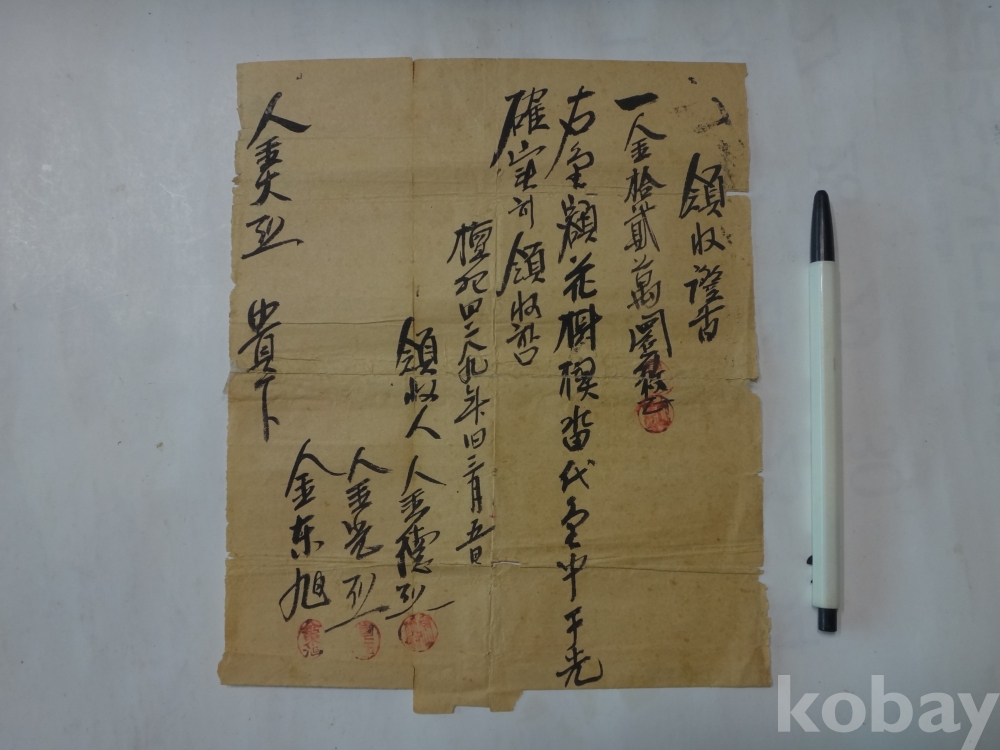 領收證書
一金拾貳萬圜整
右金額花樹楔畓代金中予光
確實히領收함
檀紀四二八九年旧三月五日
領收人 金德烈
金光烈
金東旭
金大烈 貴下
kobay